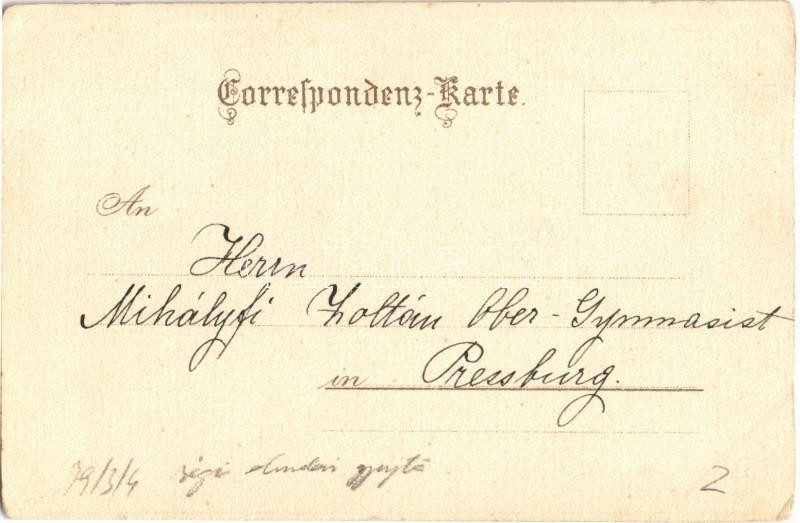 Correspondenz-Karte.
An
Herrn
Mihályfi Zoltán Ober-Gymnasist
in Pressburg.
79/3/4 régi
2